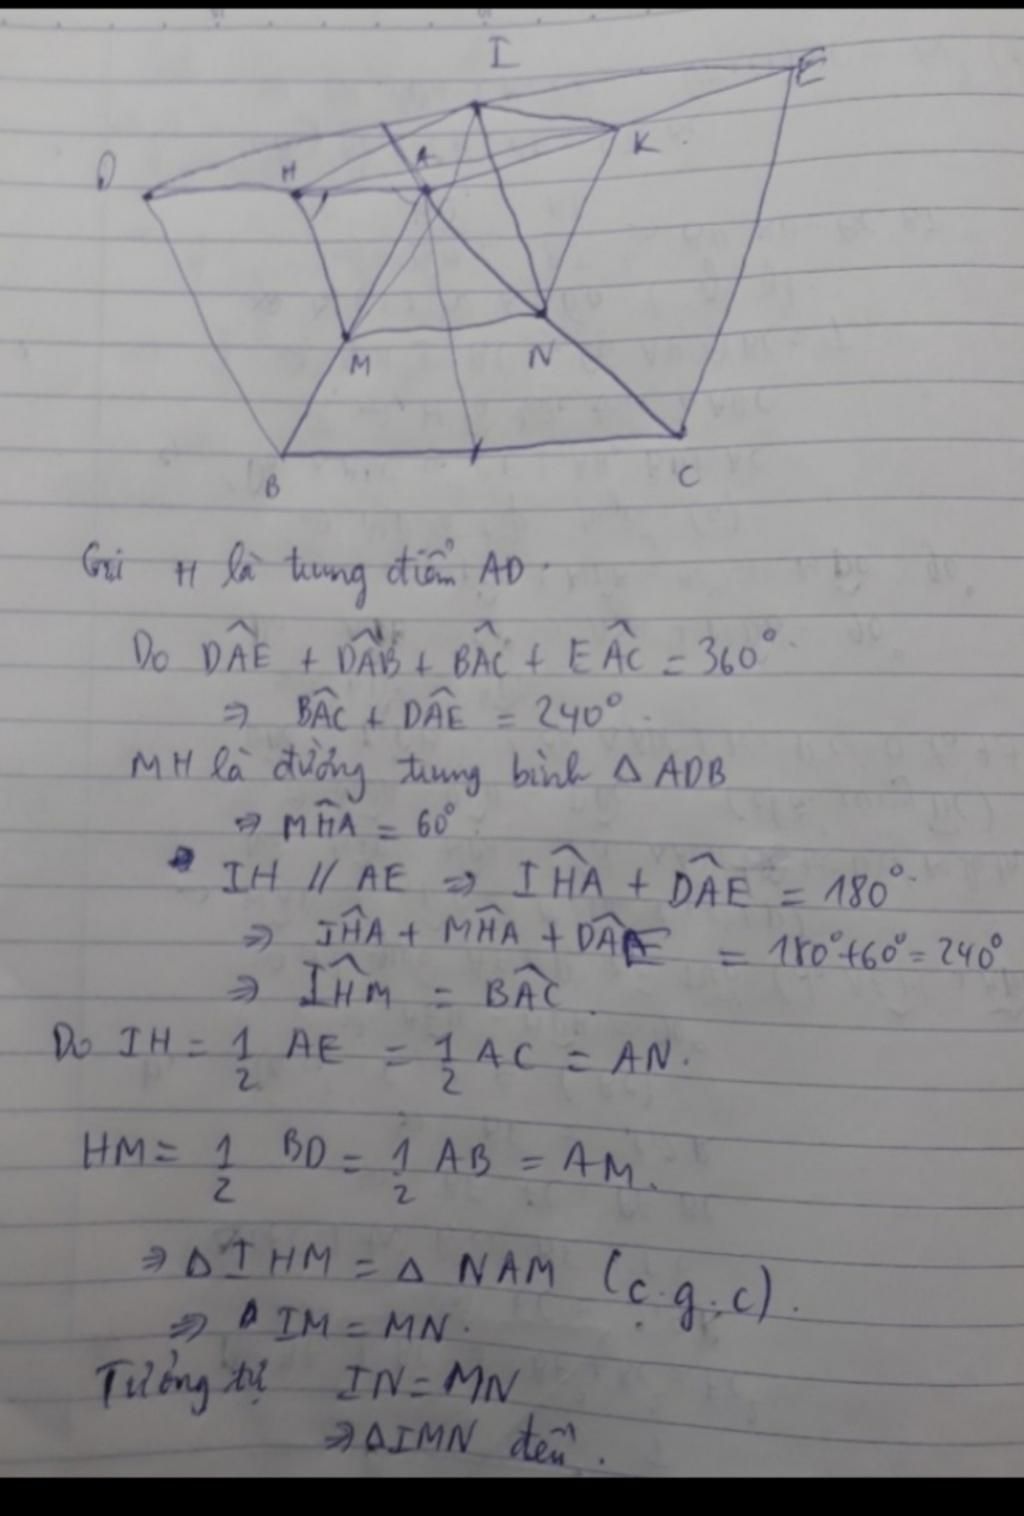 I
E
D
H
A
K
M
N
B
C
Gọi H là trung điểm AD.
Do DÂE + DÂB + BÂC + EÂC = 360°
⇒ BÂC + DÂE = 240°.
MH là đường trung bình Δ ADB
⇒ MĤA = 60°
IH // AE ⇒ IĤA + DÂE = 180°.
⇒ IĤA + MĤA + DÂE = 180°+60° = 240°
⇒ IĤM = BÂC.
Do IH = 1/2 AE = 1/2 AC = AN.
HM = 1/2 BD = 1/2 AB = AM.
⇒ Δ IHM = Δ NAM (c.g.c).
⇒ IM = MN.
Tương tự IN = MN
⇒ ΔIMN đều.